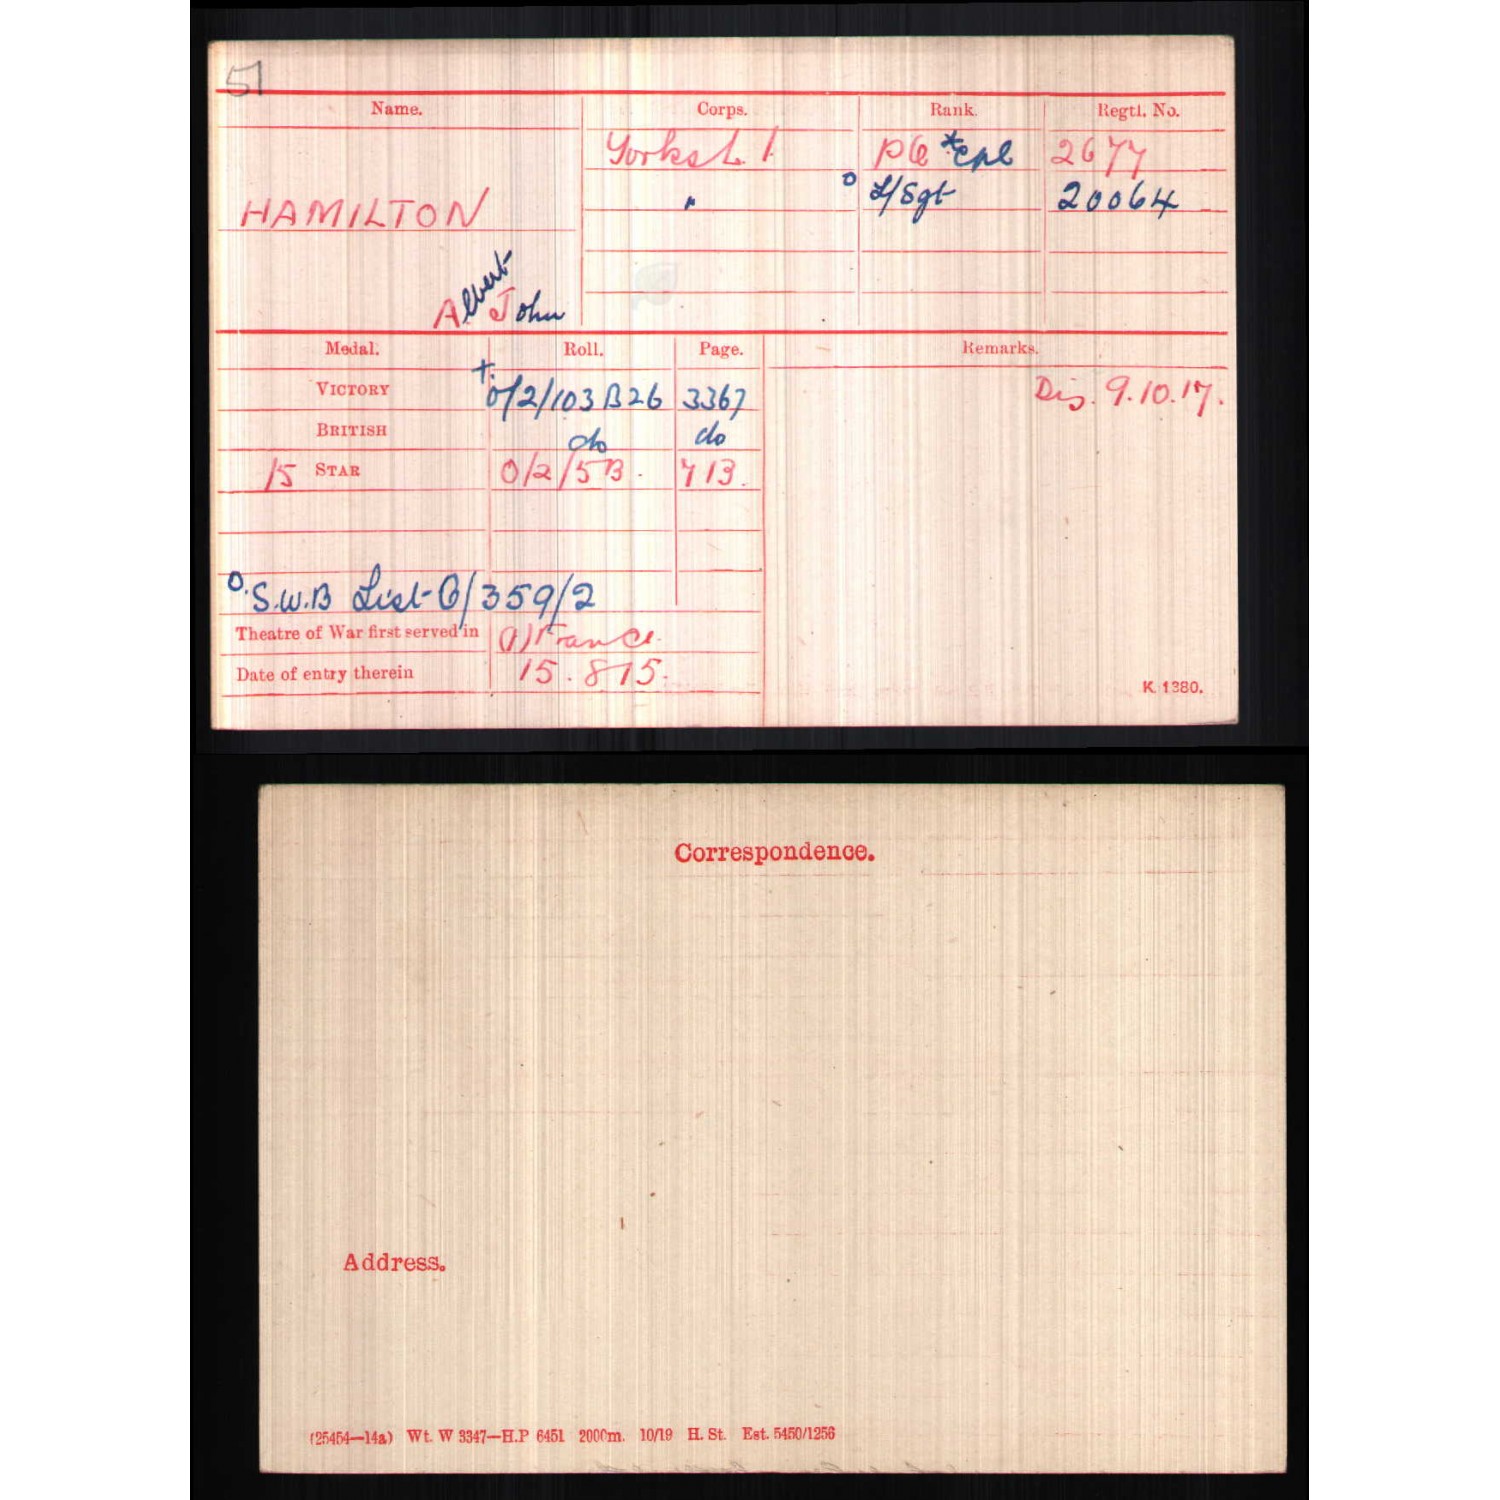 51
Name. Corps. Rank. Regtl. No.
Yorks L.I. Pte *Cpl 2677
HAMILTON " o L/Sgt 20064
Albert John
Medal. Roll. Page. Remarks.
VICTORY + O/2/103 B26 3367 Dis. 9.10.17.
BRITISH do do
15 STAR O/2/5B. 713.
o. S.W.B List O/359/2
Theatre of War first served in (1) France.
Date of entry therein 15.8.15.
K. 1380.
Correspondence.
Address.
(25454—14a) Wt. W 3347—H.P 6451 2000m. 10/19 H. St. Est. 5450/1256